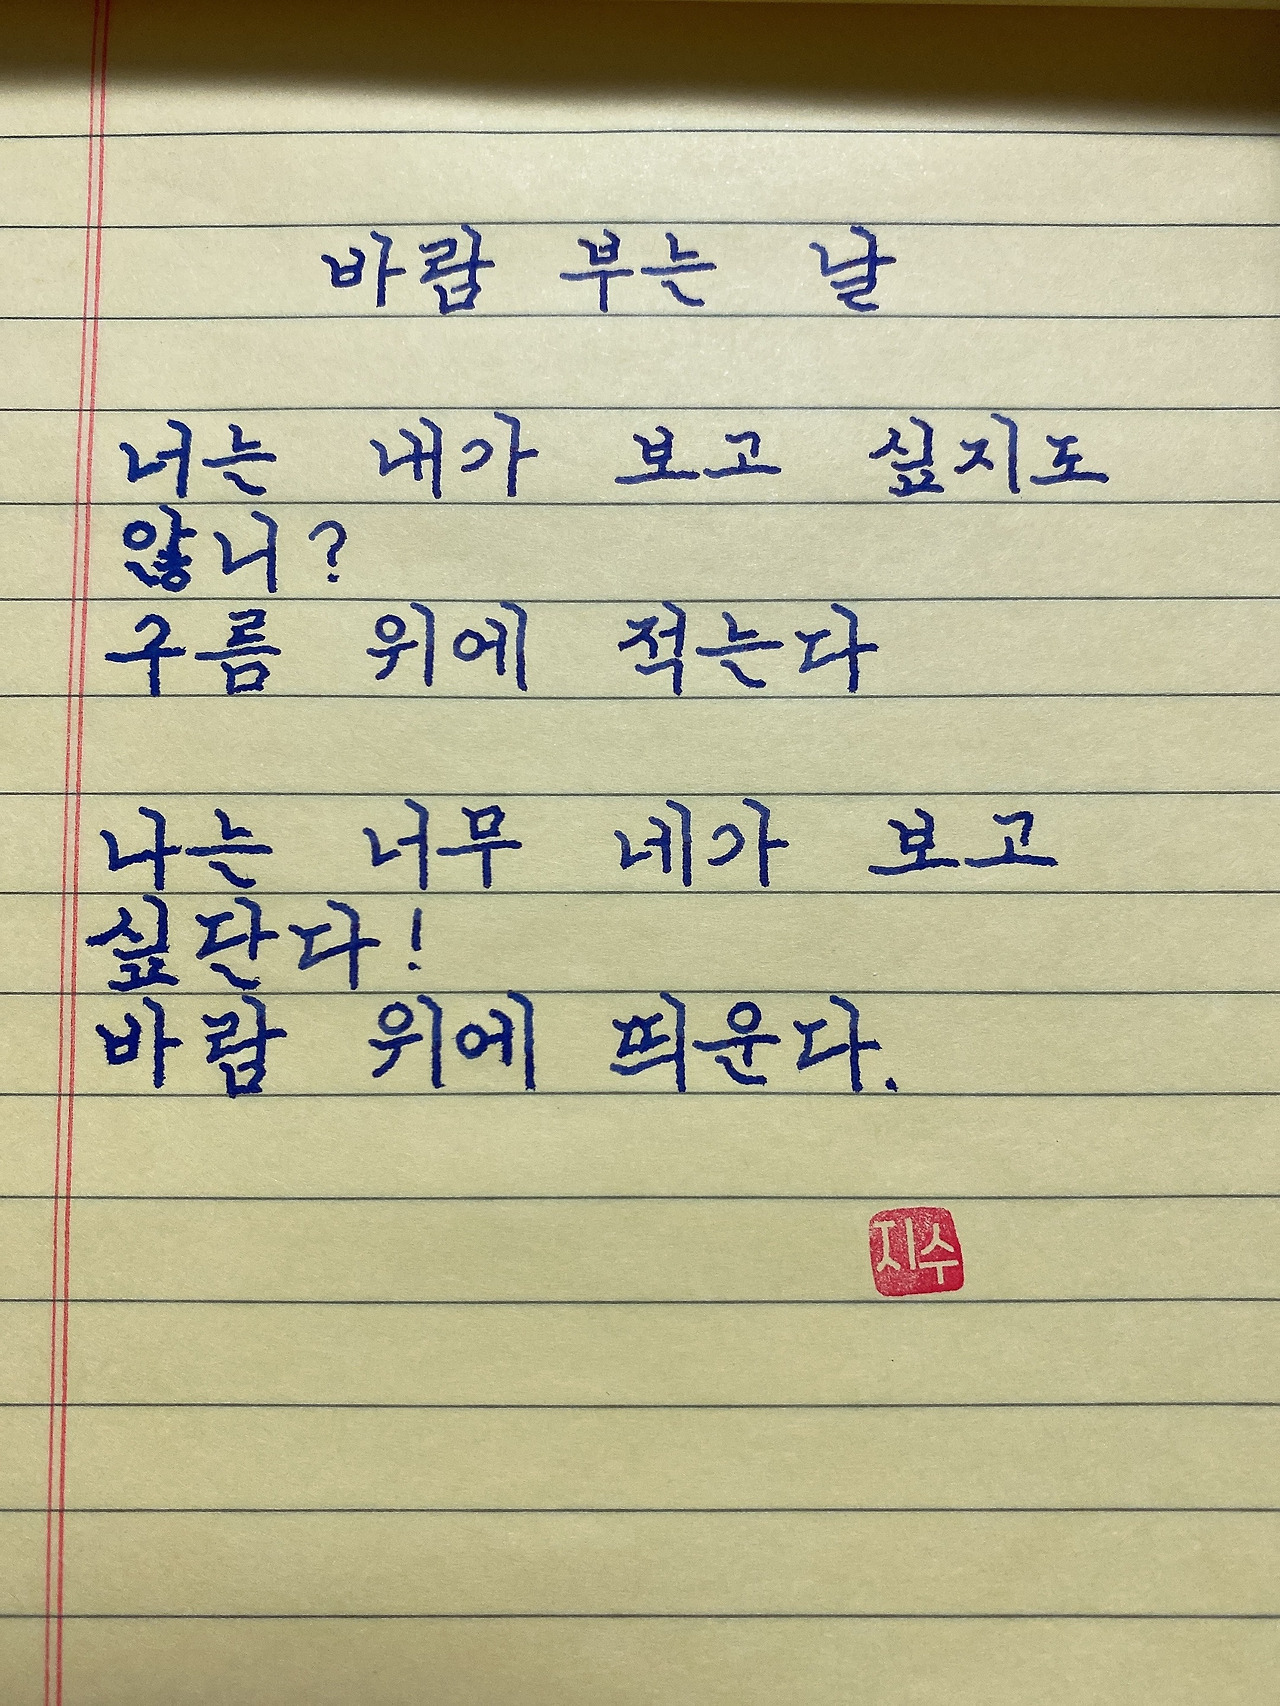 바람 부는 날
너는 내가 보고 싶지도
않니?
구름 위에 적는다
나는 너무 네가 보고
싶단다!
바람 위에 띄운다.
지수